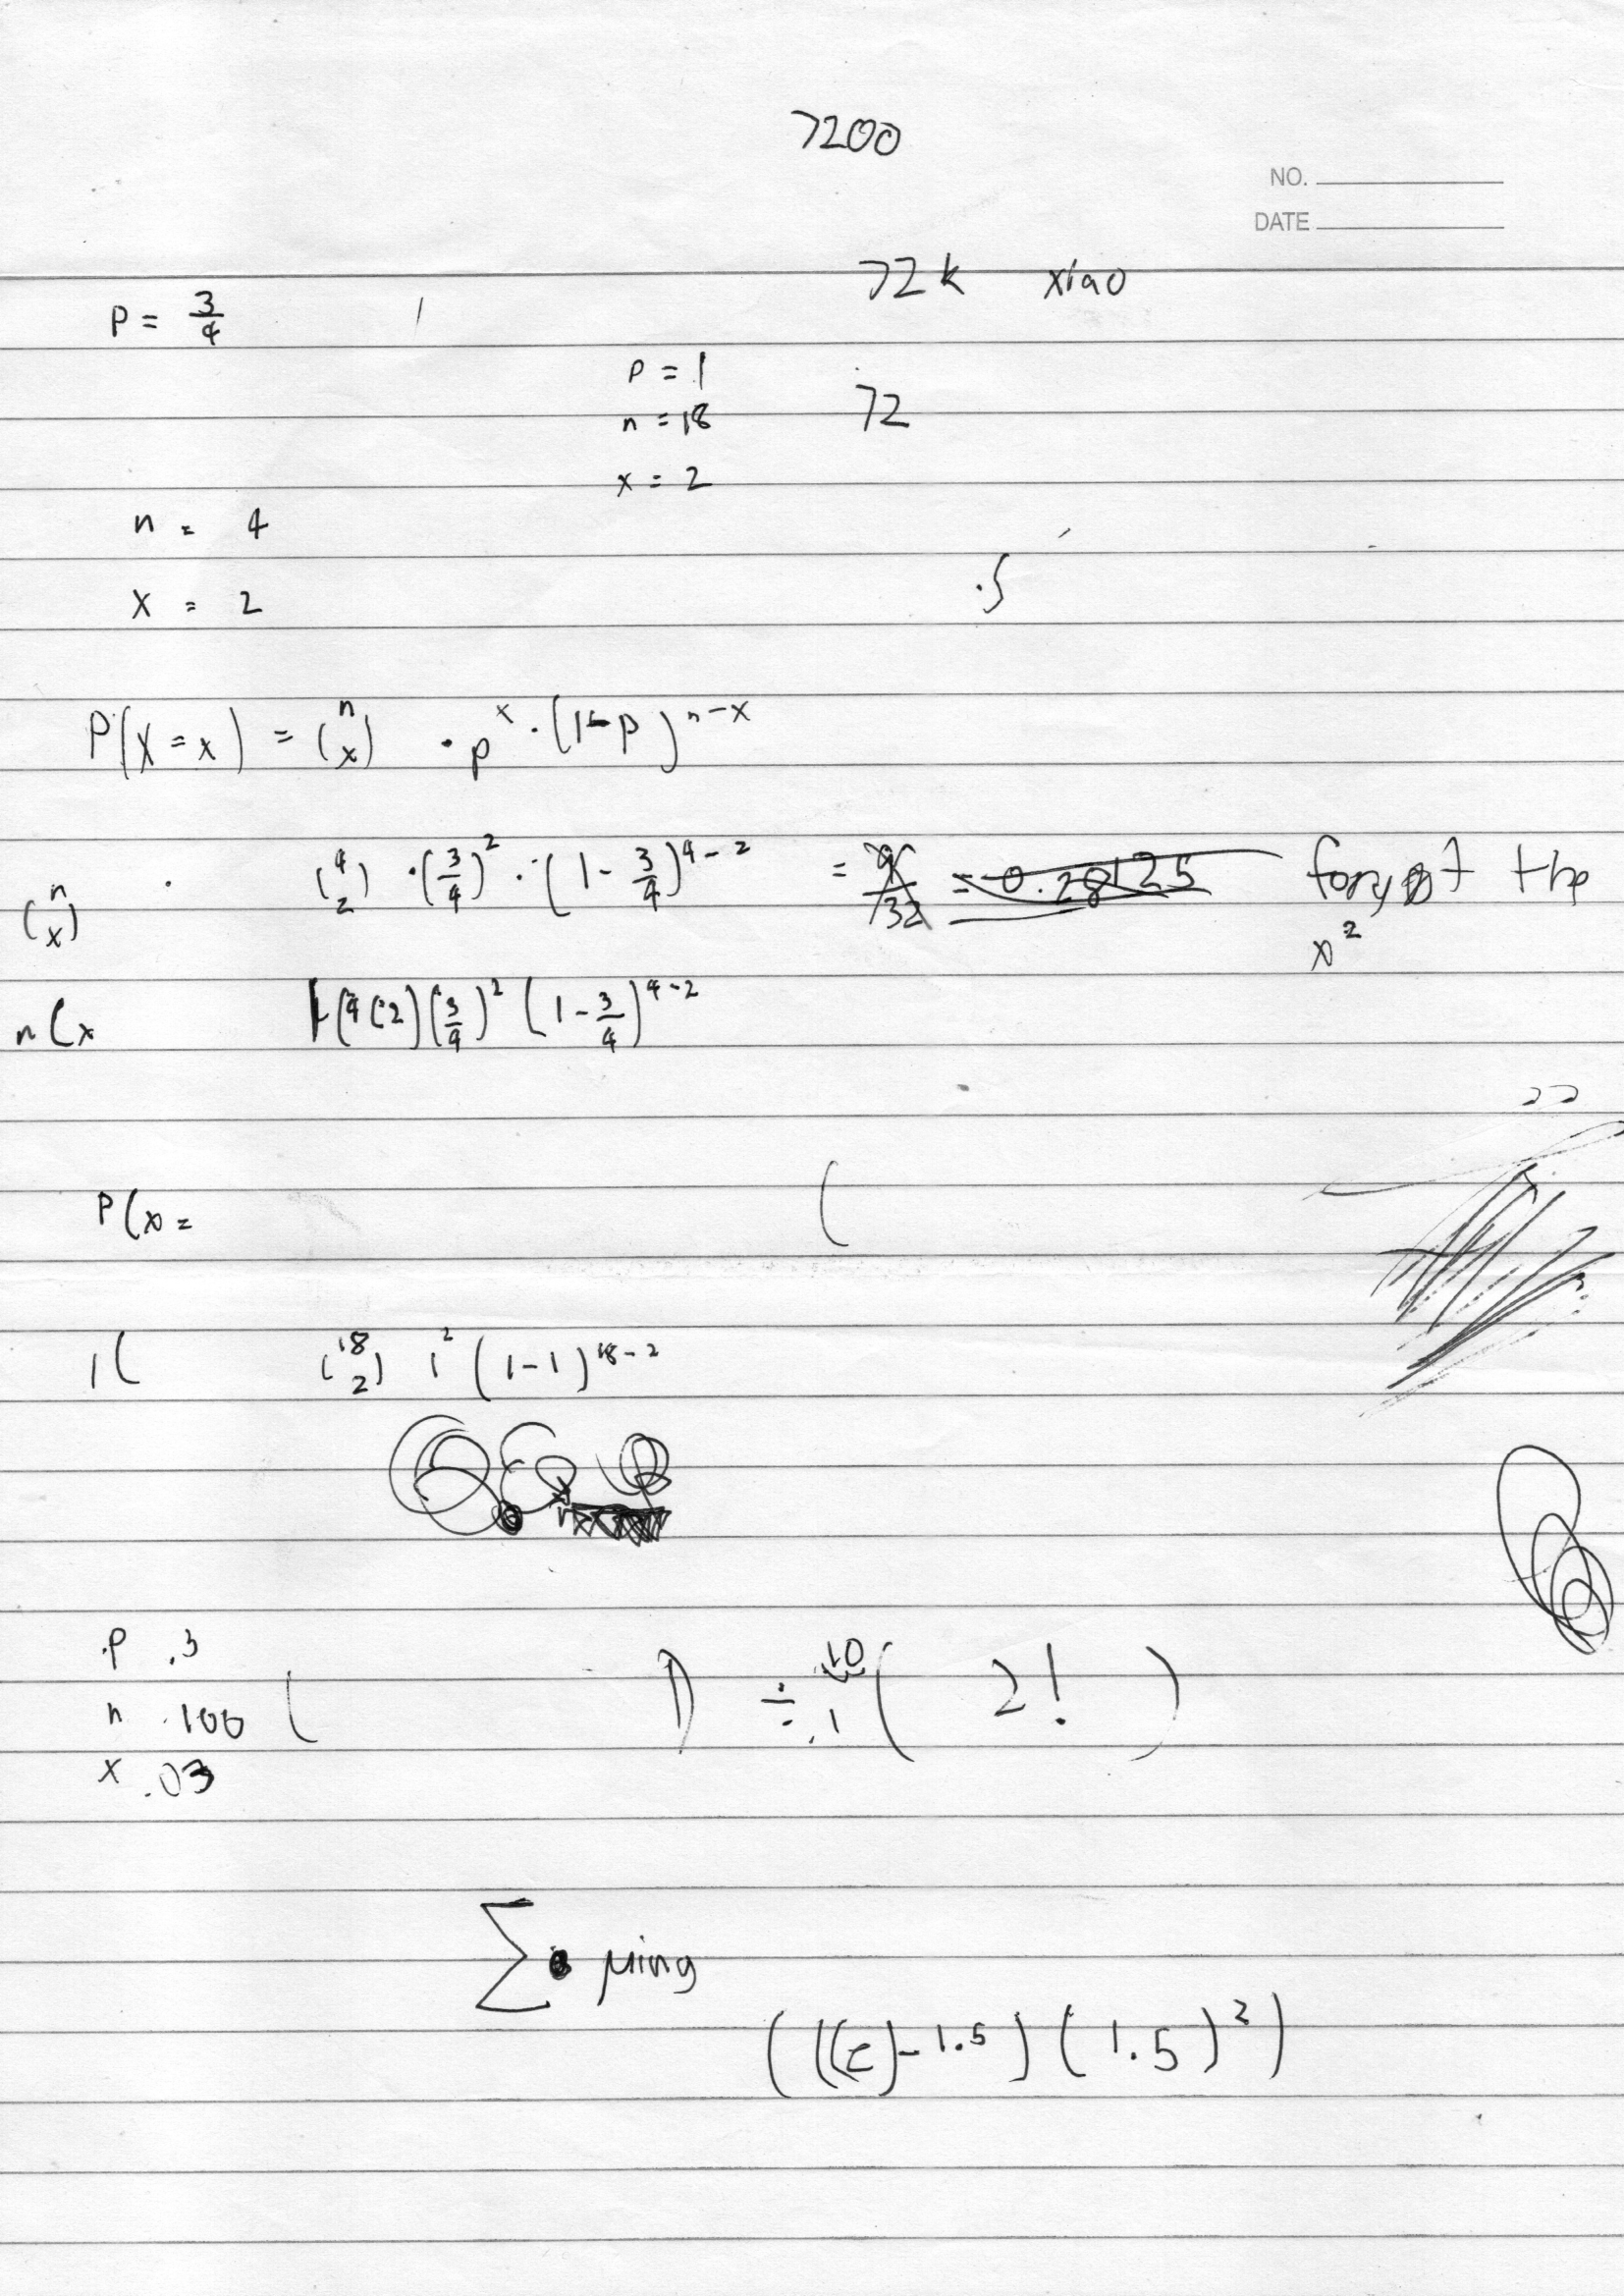 7200
NO.
DATE
72k xiao
p = 3/4
p = 1
n = 18 72
x = 2
n = 4
.5
x = 2
P(X = x) = (n x) · p^x · (1-p)^n-x
(n x) (4 2) · (3/4)^2 · (1 - 3/4)^4-2 = 9/32 = 0.28125 forgot the
x^2
nCx (4C2)(3/4)^2 (1 - 3/4)^4-2
P(x =
(
1( (18 2) 1^2 (1-1)^18-2
p .3
n .100 ( ) ÷ ( 2! )
x .03
Σ μing
(((ε)-1.5)(1.5)^2)